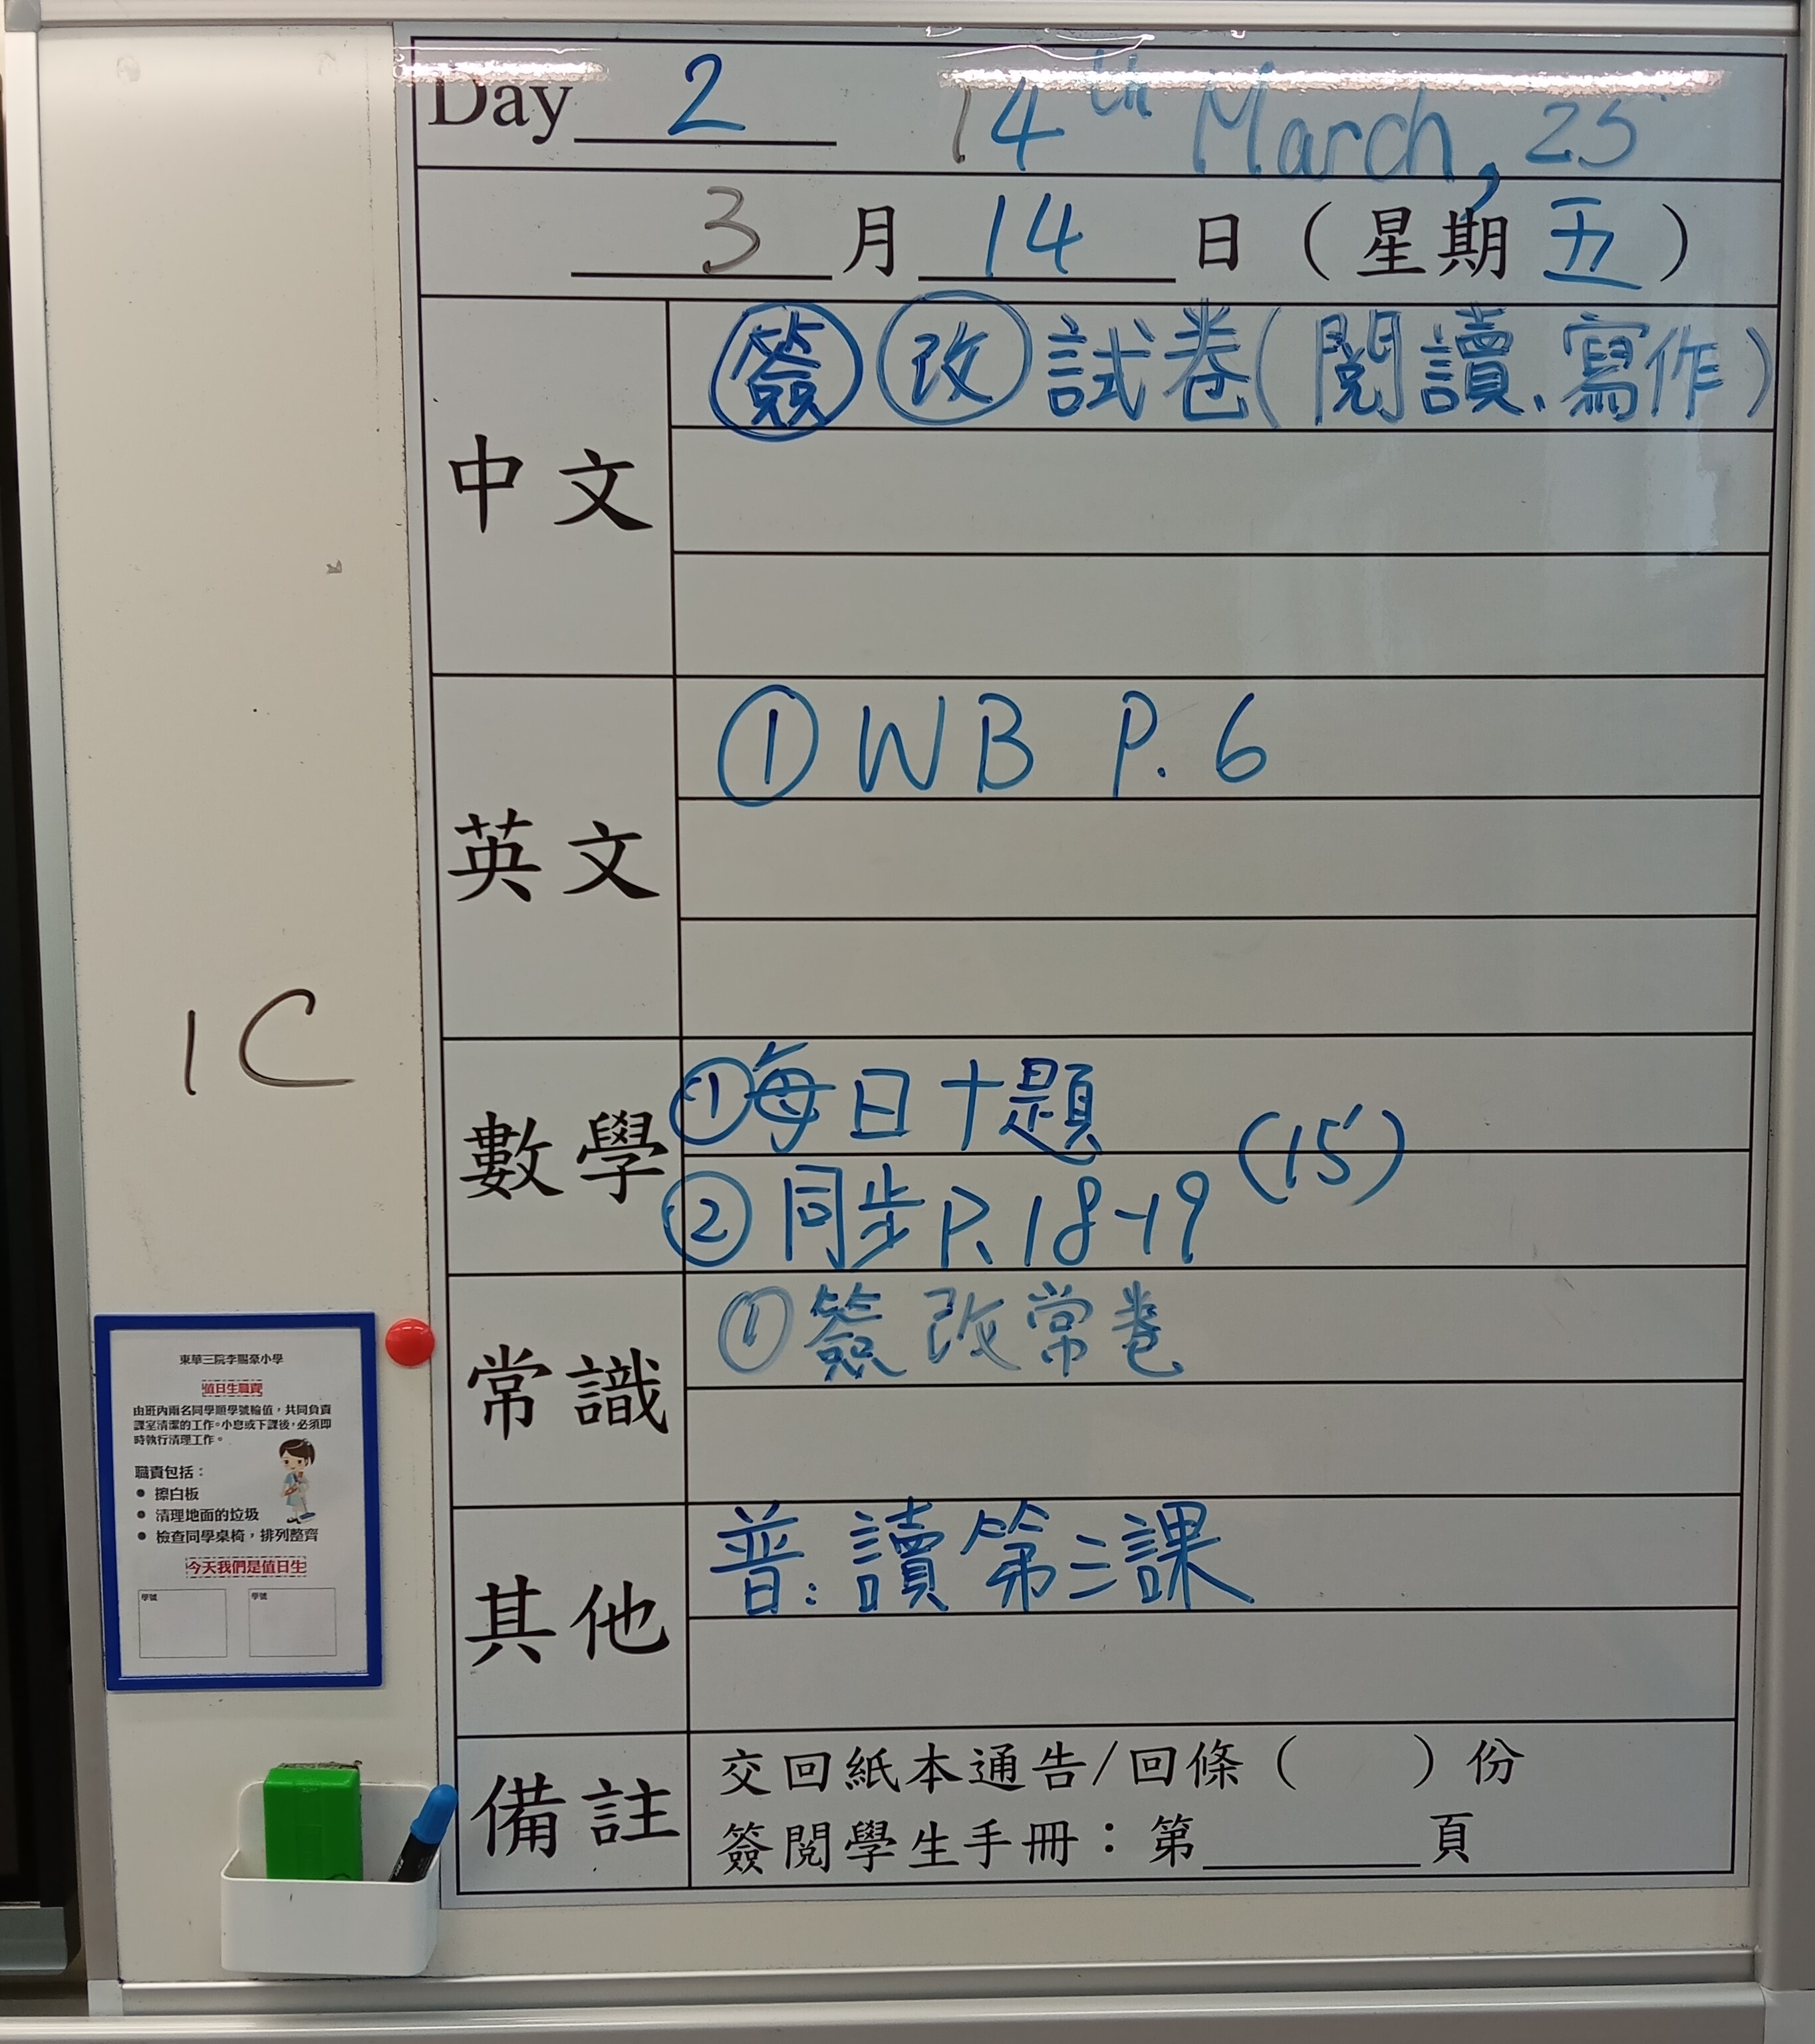 Day 2 14th March, 25
3 月 14 日 ( 星期 五 )
中文
簽 改 試卷(閱讀、寫作)
英文
① WB P. 6
數學
①每日十題
(15)
② 同步P. 18-19
常識
① 簽 改常卷
其他
普: 讀第三課
備註
交回紙本通告/回條 ( ) 份
簽閱學生手冊：第 頁
1C
東華三院李賜豪小學
值日生職責
由班內兩名同學順學號輪值，共同負責
課室清潔的工作。小息或下課後，必須即
時執行清理工作。
職責包括：
● 擦白板
● 清理地面的垃圾
● 檢查同學桌椅，排列整齊
今天我們是值日生
學號 學號